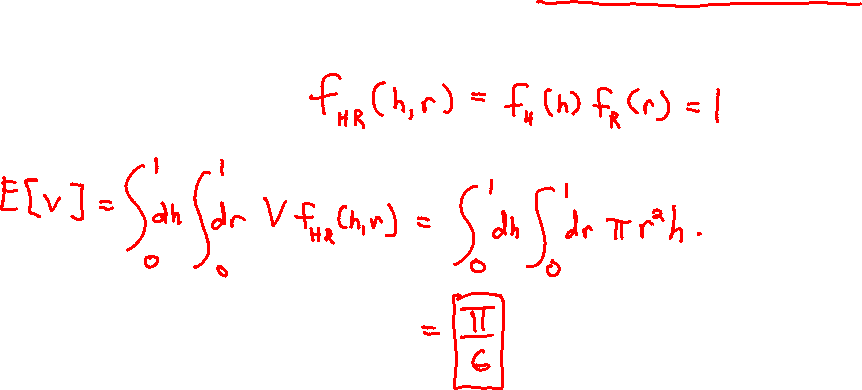 f_{HR}(h,r) = f_H(h) f_R(r) = 1
E[V] = ∫_0^1 dh ∫_0^1 dr V f_{HR}(h,r) = ∫_0^1 dh ∫_0^1 dr π r²h.
= π/6